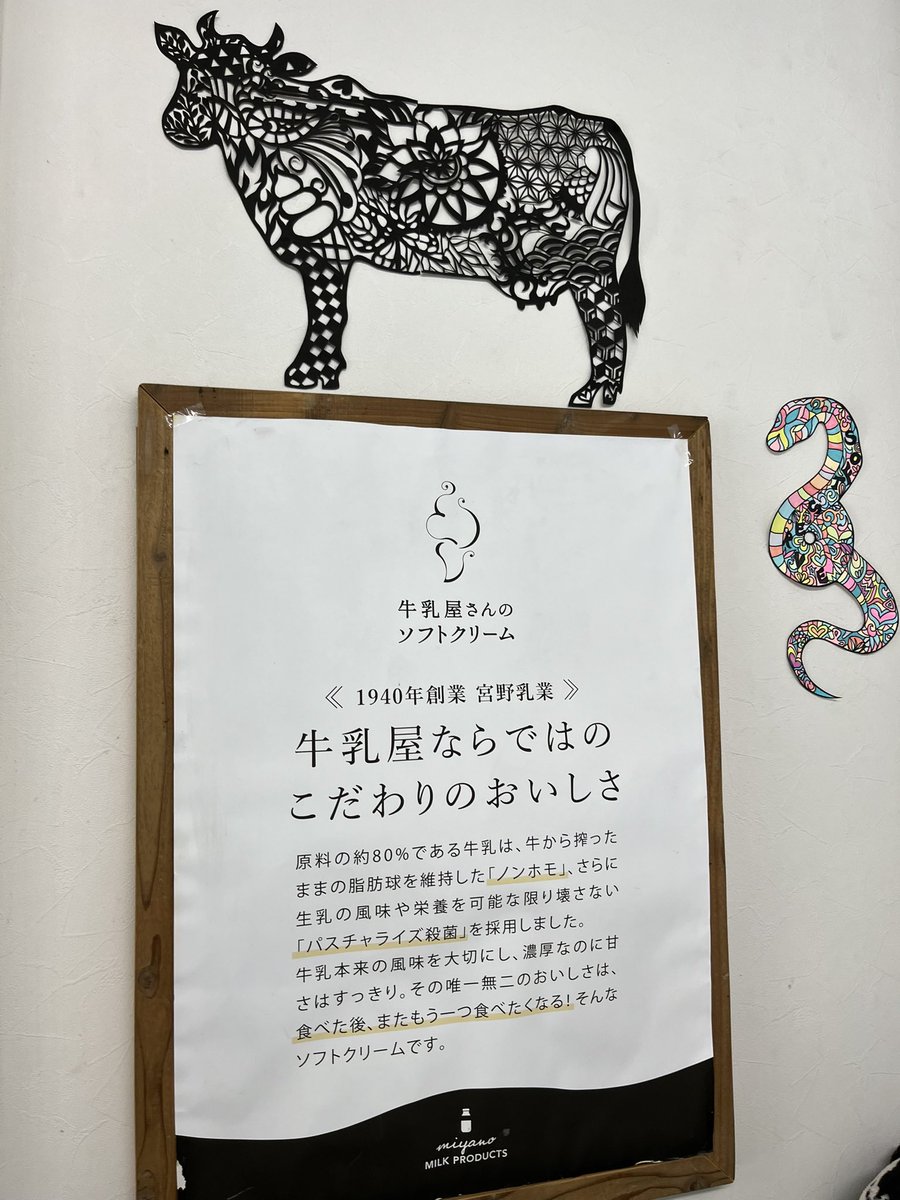 牛乳屋さんの
ソフトクリーム
《 1940年創業 宮野乳業 》
牛乳屋ならではの
こだわりのおいしさ
原料の約80%である牛乳は、牛から搾った
ままの脂肪球を維持した「ノンホモ」、さらに
生乳の風味や栄養を可能な限り壊さない
「パスチャライズ殺菌」を採用しました。
牛乳本来の風味を大切にし、濃厚なのに甘
さはすっきり。その唯一無二のおいしさは、
食べた後、またもう一つ食べたくなる！そんな
ソフトクリームです。
miyano
MILK PRODUCTS
SOFT